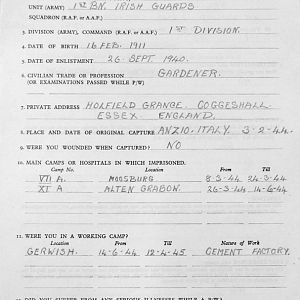 UNIT (ARMY) 1st BN. IRISH GUARDS
SQUADRON (R.A.F. or A.A.F.)
3. DIVISION (ARMY), COMMAND (R.A.F. or A.A.F.) 1ST DIVISION.
4. DATE OF BIRTH 16 FEB. 1911
5. DATE OF ENLISTMENT 26 SEPT 1940.
6. CIVILIAN TRADE OR PROFESSION GARDENER.
(OR EXAMINATIONS PASSED WHILE P/W)
7. PRIVATE ADDRESS HOLFIELD GRANGE. COGGESHALL.
ESSEX. ENGLAND.
8. PLACE AND DATE OF ORIGINAL CAPTURE ANZIO. ITALY. 3-2-44.
9. WERE YOU WOUNDED WHEN CAPTURED? NO
10. MAIN CAMPS OR HOSPITALS IN WHICH IMPRISONED.
Camp No. Location From Till
VII A. MOOSBURG 8-3-44 24-3-44
XI A ALTEN GRABOW. 26-3-44 14-6-44
11. WERE YOU IN A WORKING CAMP?
Location From Till Nature of Work
GERWISH. 14-6-44 12-4-45 CEMENT FACTORY.
DID YOU SUFFER FROM ANY SERIOUS ILLNESSES WHILE A P/W?